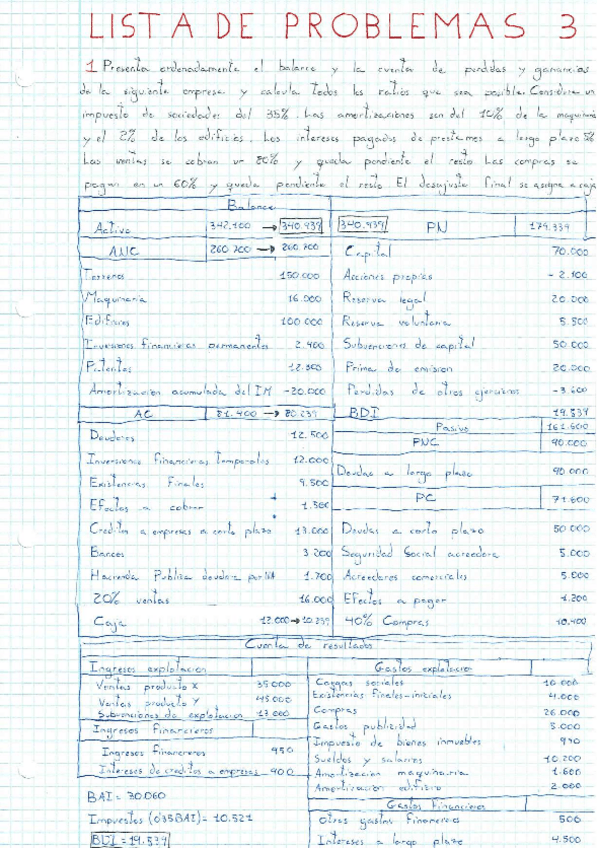 LISTA DE PROBLEMAS 3
1 Presenta ordenadamente el balance y la cuenta de perdidas y ganancias
de la siguiente empresa y calcula todos los ratios que sea posible. Considerar un
impuesto de sociedades del 35%. Las amortizaciones son del 10% de la maquinaria
y el 2% de los edificios. Los intereses pagados de prestamos a largo plazo 5%
Las ventas se cobran un 80% y queda pendiente el resto Las compras se
pagan en un 60% y queda pendiente el resto El desajuste final se asigna a caja
Balance
Activo 342.100 → 340.939
340.939 PN 179.339
ANC 260.700 → 260.700
Capital 70.000
Terrenos 150.000
Acciones propias -2.100
Maquinaria 16.000
Reserva legal 20.000
Edificios 100.000
Reserva voluntaria 5.500
Inversiones financieras permanentes 2.400
Subvenciones de capital 50.000
Patentes 12.300
Prima de emision 20.000
Amortizacion acumulada del IM -20.000
Perdidas de otros ejercicios -3.600
AC 81.400 → 80.239
BDI 19.539
Pasivo 161.600
Deudores 12.500
PNC 90.000
Inversiones Financieras Temporales 12.000
Deudas a largo plazo 90.000
Existencias Finales 9.500
PC 71.600
Efectos a cobrar 1.500
Creditos a empresas a corto plazo 13.000
Deudas a corto plazo 50.000
Bancos 3.200
Seguridad Social acreedora 5.000
Hacienda Publica deudora por IVA 1.700
Acreedores comerciales 5.000
20% ventas 16.000
Efectos a pagar 1.200
Caja 12.000 → 10.839
40% Compras 10.400
Cuenta de resultados
Ingresos explotacion
Gastos explotacion
Ventas producto X 35.000
Cargas sociales 10.000
Ventas producto Y 45.000
Existencias finales-iniciales 4.000
Subvenciones de explotacion 13.000
Compras 26.000
Ingresos financieros
Gastos publicidad 5.000
Ingresos financieros 950
Impuesto de bienes inmuebles 990
Intereses de creditos a empresas 900
Sueldos y salarios 10.200
Amortizacion maquinaria 1.600
Amortizacion edificio 2.000
BAI = 30.060
Gastos financieros
Impuestos (0'35BAI) = 10.521
Otros gastos financieros 500
BDI = 19.539
Intereses a largo plazo 4.500